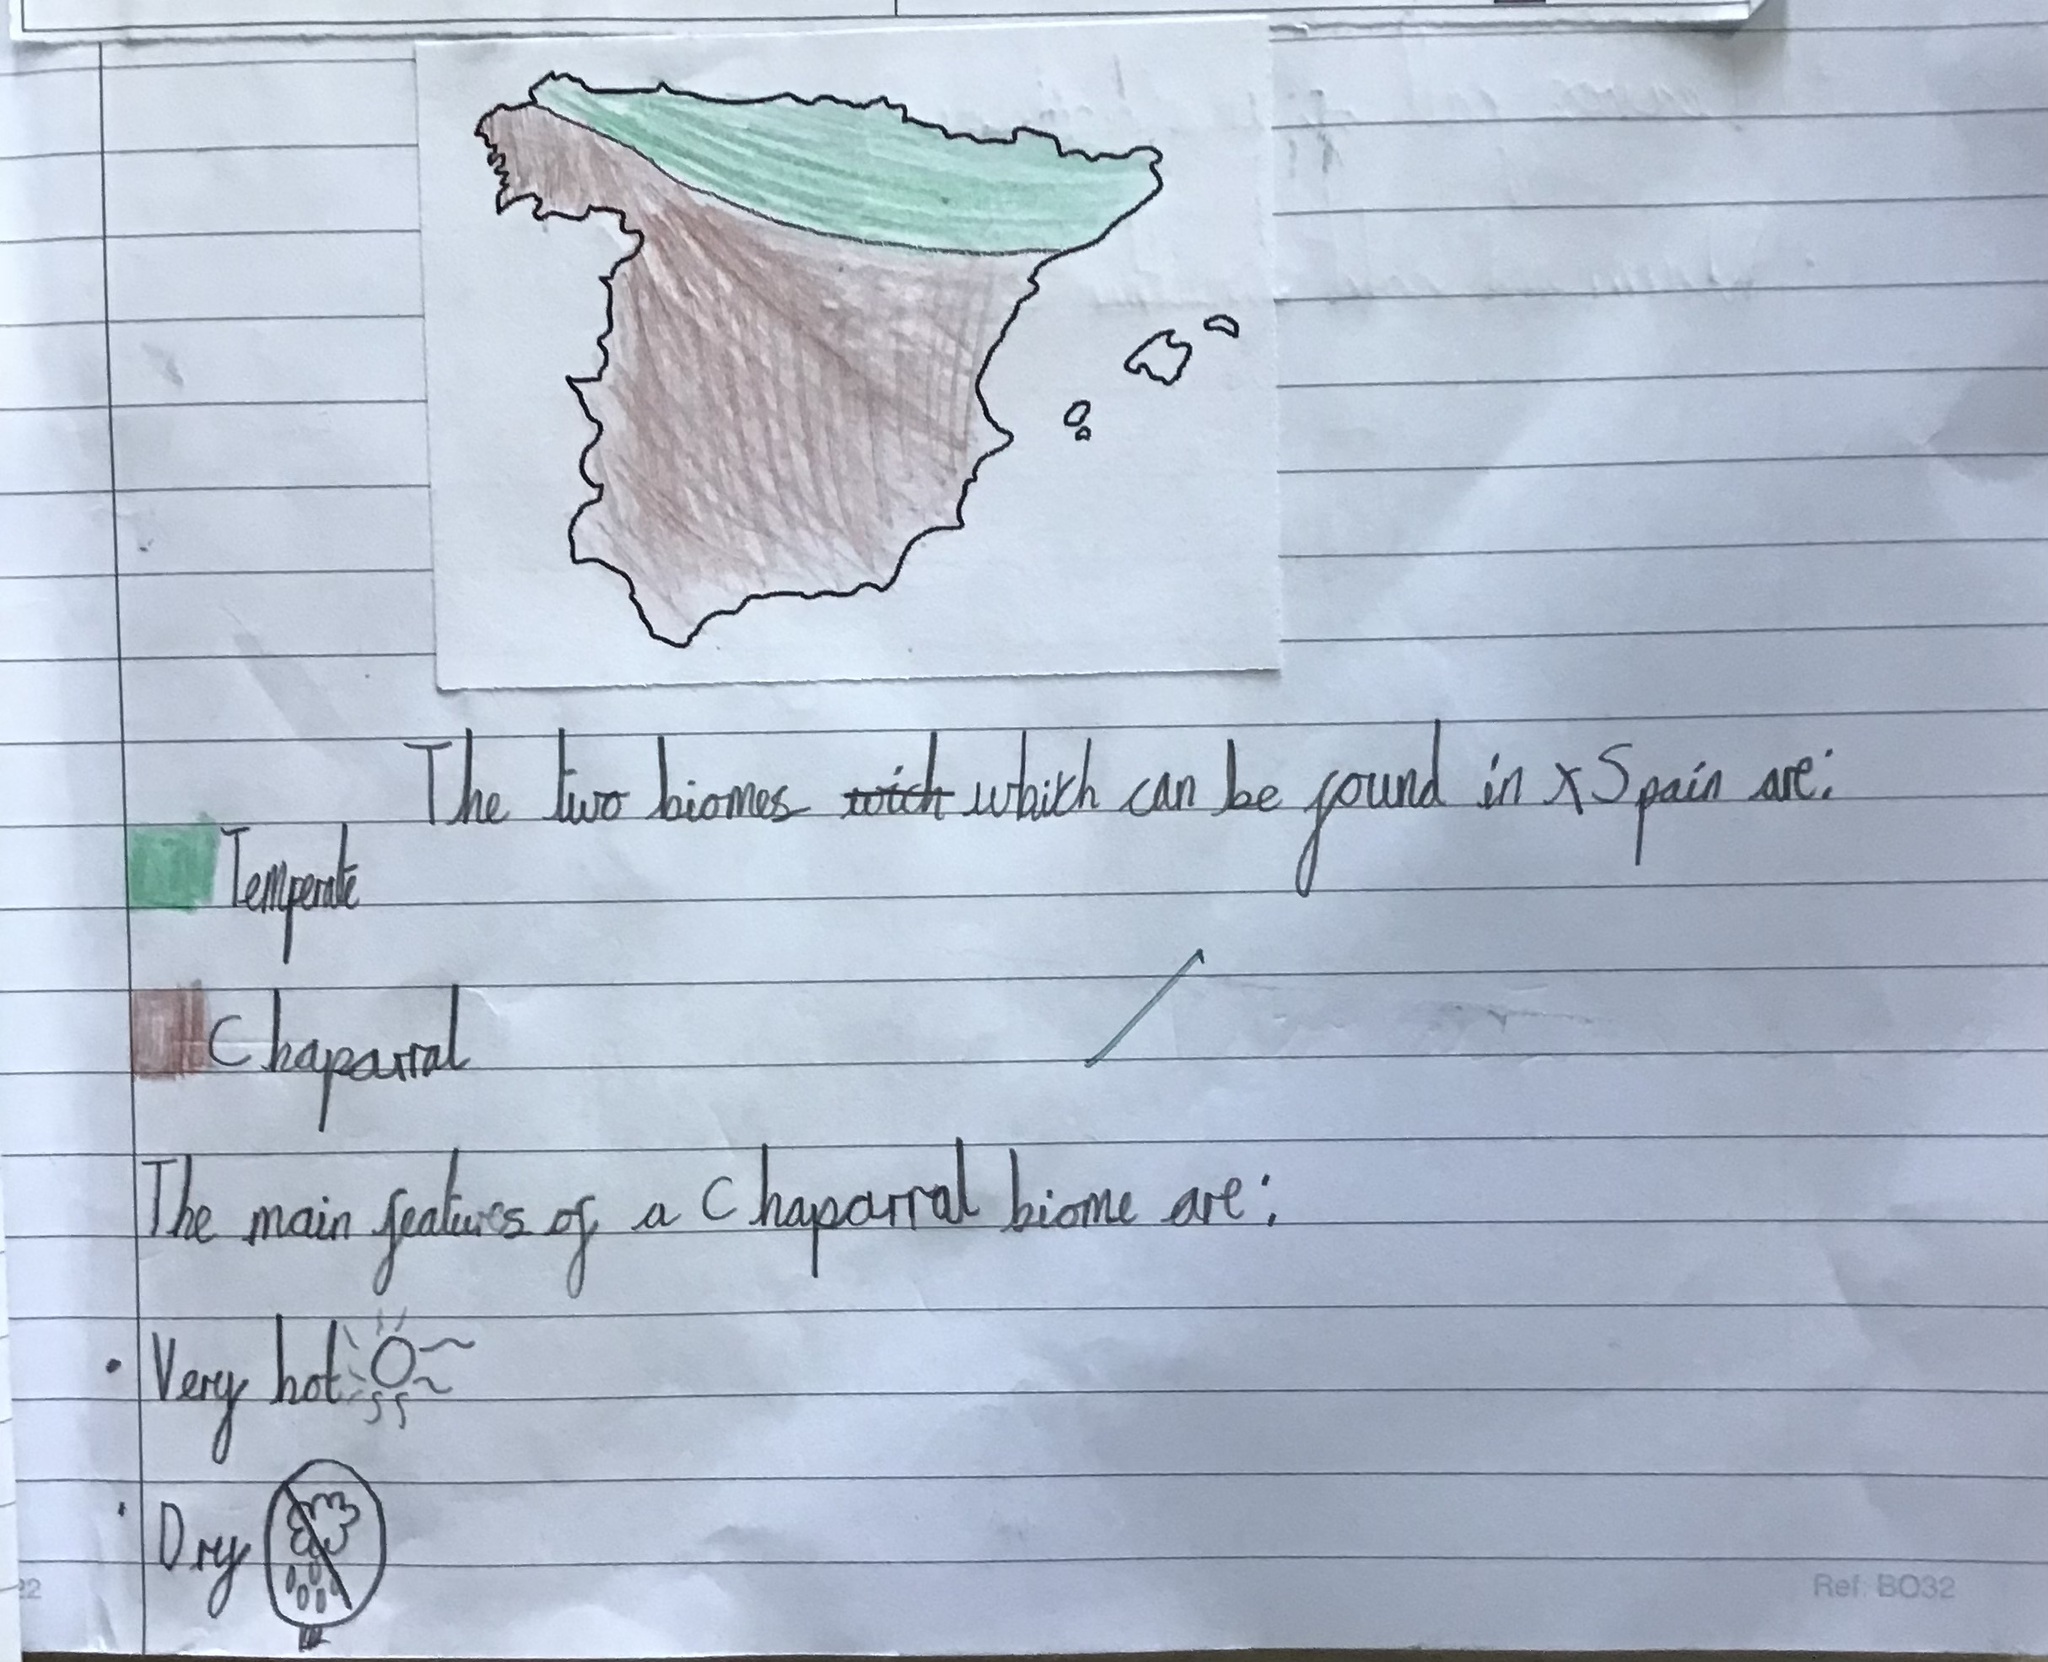 The two biomes wich which can be found in x Spain are:
Temperate
Chaparral
The main features of a Chaparral biome are:
• Very hot
• Dry
22
Ref: BO32